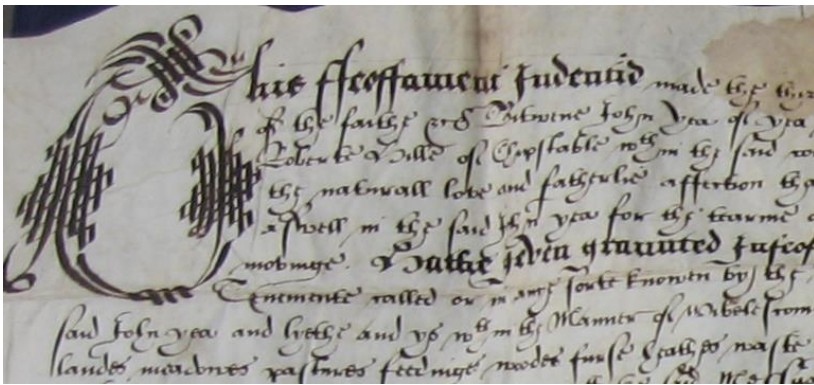 This Feoffament Indentid made the
of the faithe &c Bitwene John yea of yea
Roberte Hille of Chipstable wthin the said
the naturall love and fatherlie affection
aswell in the said Jhn yea for the tearme
movinge. Hathe geven graunted Infeof
Tenemente called or in anye sorte knowen by the
said John yea and lyethe and ys wthin the Mannor of
landes meadowes pastures feedinge woodes furse heathes waste